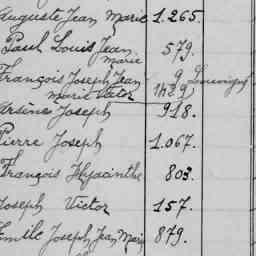 Auguste Jean Marie 1.265.
Paul Louis Jean 579.
Marie
François Joseph Jean 9
Marie Victor 1429
Arsène Joseph 918.
Pierre Joseph 1.067.
François Hyacinthe 803.
Joseph Victor 157.
Emile Joseph Jean Marie 879.